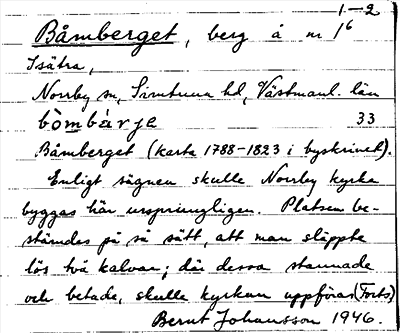 1–2
Båmberget, berg å nr 1⁶
Isätra,
Norrby sn, Simtuna hd, Västmanl. län
bòmbárje 33
Båmberget (karta 1788–1823 i byskrinet).
Enligt sägnen skulle Norrby kyrka
byggas här ursprungligen. Platsen be-
stämdes på så sätt, att man släppte
lös två kalvar; där dessa stannade
och betade, skulle kyrkan uppföras (Forts)
Bernt Johansson 1946.